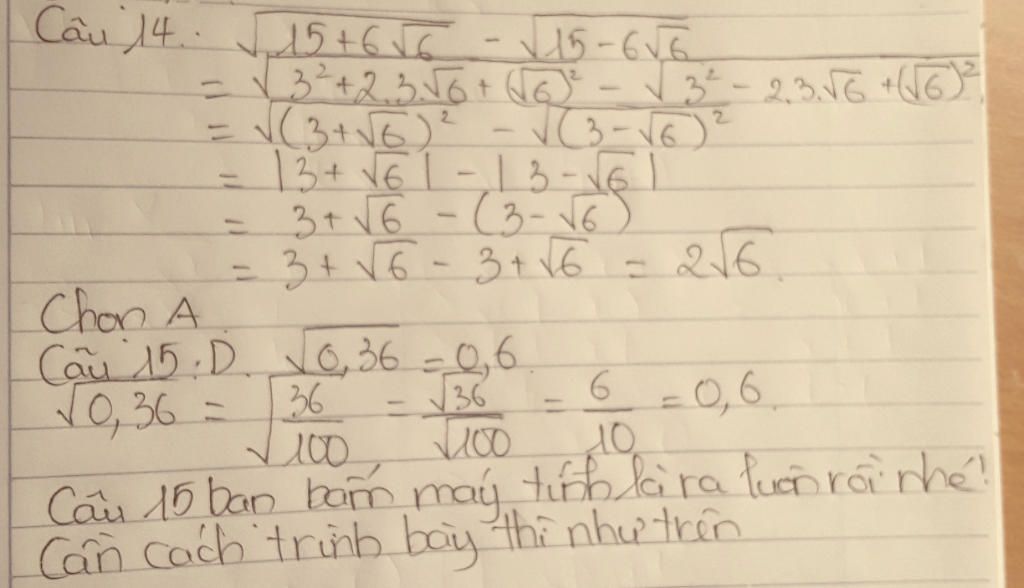 Câu 14.: √15+6√6 - √15-6√6
= √3²+2.3.√6+(√6)² - √3² - 2.3.√6+(√6)²
= √(3+√6)² - √(3-√6)²
= |3+√6| - |3-√6|
= 3+√6 - (3-√6)
= 3+√6 - 3+√6 = 2√6.
Chọn A
Câu 15.D. √0,36 = 0,6
√0,36 = √36/100 = √36/√100 = 6/10 = 0,6.
Câu 15 bạn bấm máy tính là ra luôn rồi nhé!
Còn cách trình bày thì như trên